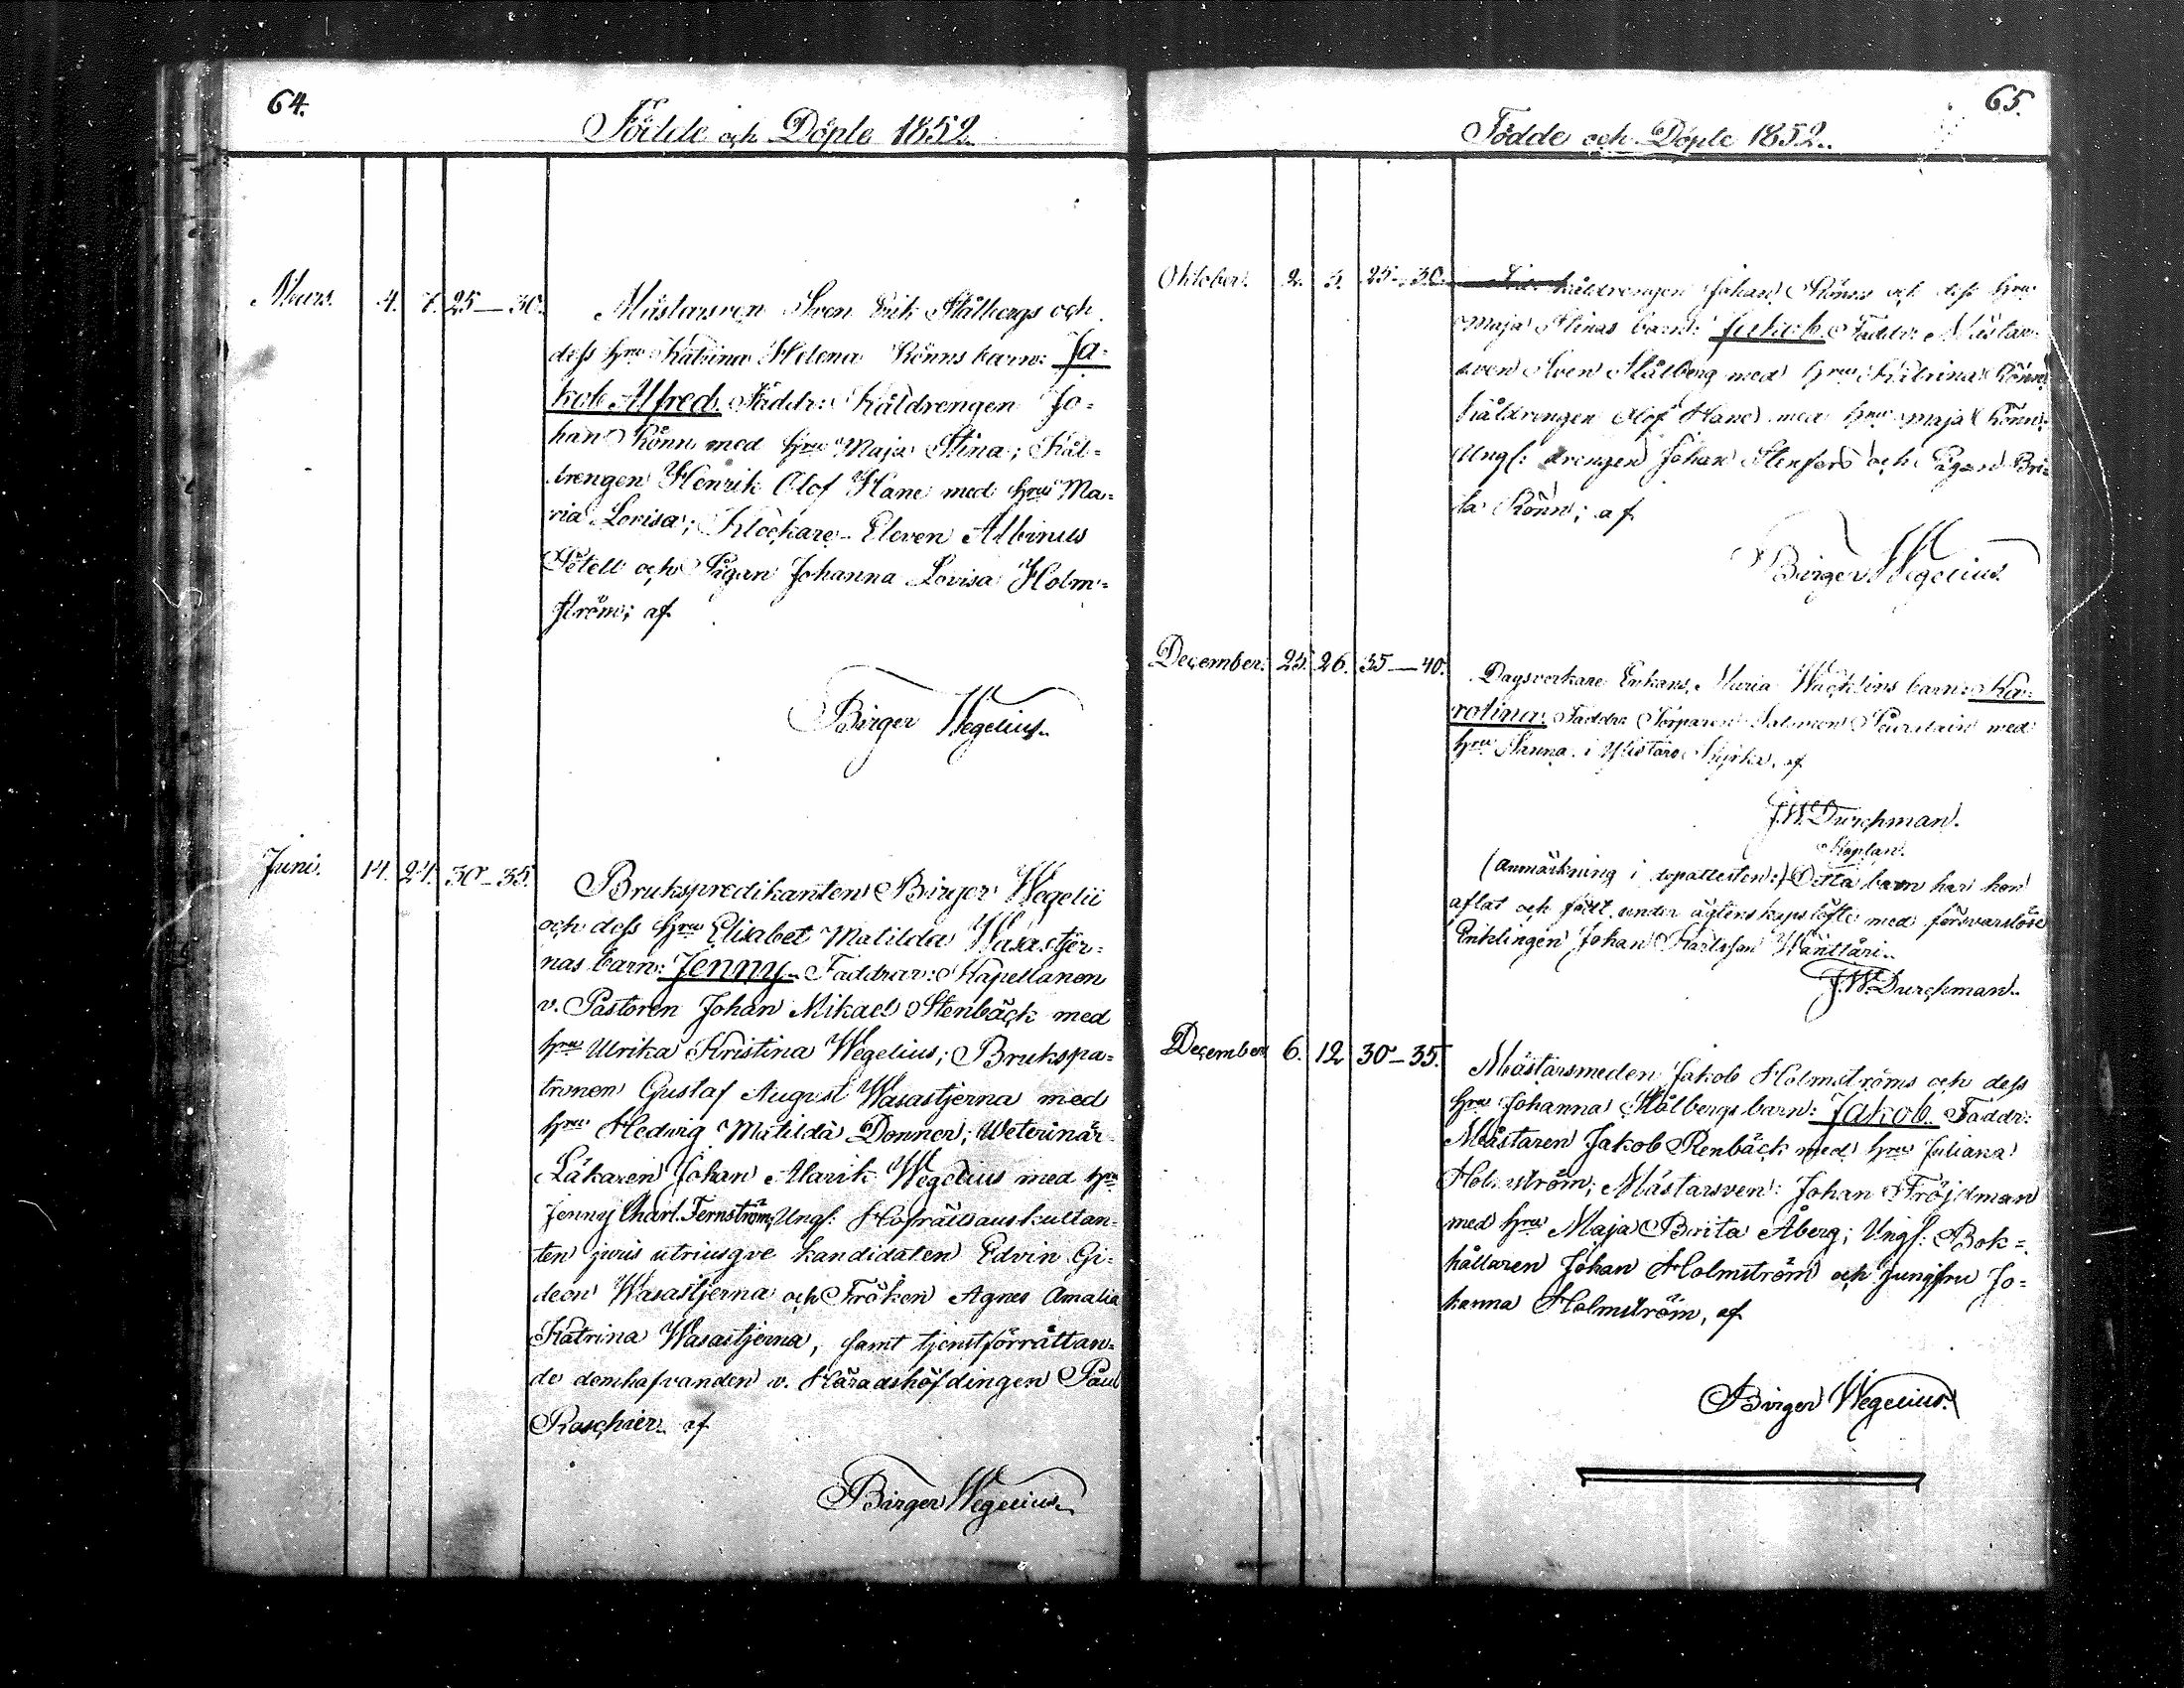 64.
Födde och Döpte 1852.
Mars. 4. 7. 25—30. Mästarsven Sven Erik Stålbergs och
dess hru Katrina Helena Rönns barn: Ja-
kob Alfred. Faddr: Kåldrengen Jo-
han Rönn med hru Maja Stina; Kål-
drengen Henrik Olof Hane med hru Ma-
ria Lovisa; Klockare-Eleven Albinus
Petell och Pigan Johanna Lovisa Holm-
ström; af
Birger Wegelius.
Juni. 14. 24. 30—35. Brukspredikanten Birger Wegelii
och dess hru Elisabet Matilda Wasastjer-
nas barn: Jenny. Faddrar: Kapellanen
v. Pastoren Johan Mikael Stenbäck med
hru Ulrika Kristina Wegelius; Brukspa-
tronen Gustaf August Wasastjerna med
hru Hedwig Matilda Donner; Weterinär-
Läkaren Johan Alarik Wegelius med hru
Jenny Charl. Fernström; Ungf: Hofrättsauskultan-
ten juris utriusqve kandidaten Edvin Gi-
deon Wasastjerna och Fröken Agnes Amalia
Katrina Wasastjerna, samt tjenstförrättan-
de domhafvanden v. Häradshöfdingen Paul
Roschier. af
Birger Wegelius.
65.
Födde och Döpte 1852.
Oktober. 2. 3. 25—30. kåldrengen Johan Rönns och dess hru
Maja Stinas barn: Jakob. Faddr: Mästar-
sven Sven Stålberg med hru Katrina Rönn;
kåldrengen Olof Hane med hru Maja Rönn;
Ungf: drengen Johan Stenfors och Pigan Bri-
ta Rönn; af
Birger Wegelius.
December. 25. 26. 35—40. Dagsverkare Enkans, Maria Wäcklins barn: Ka-
rolina. Faddr: Torparen Salomon med
hru Sanna i Ylistaro Kyrka, af
J.W. Durchman.
Kaplan.
(Anmärkning i dopattesten:) Detta barn har hon
aflat och födt under ägtenskapslöfte med försvarslöse
Enklingen Johan Karlsson Wänttäri.
J.W. Durchman.
December 6. 12 30—35. Mästarsmeden Jakob Holmströms och dess
hru Johanna Stålbergs barn: Jakob. Faddr:
Mästaren Jakob Renbäck med hru Juliana
Holmström; Mästarsven: Johan Fröjdman
med hru Maja Brita Åberg; Ungf: Bok-
hållaren Johan Holmström och jungfru Jo-
hanna Holmström, af
Birger Wegelius.